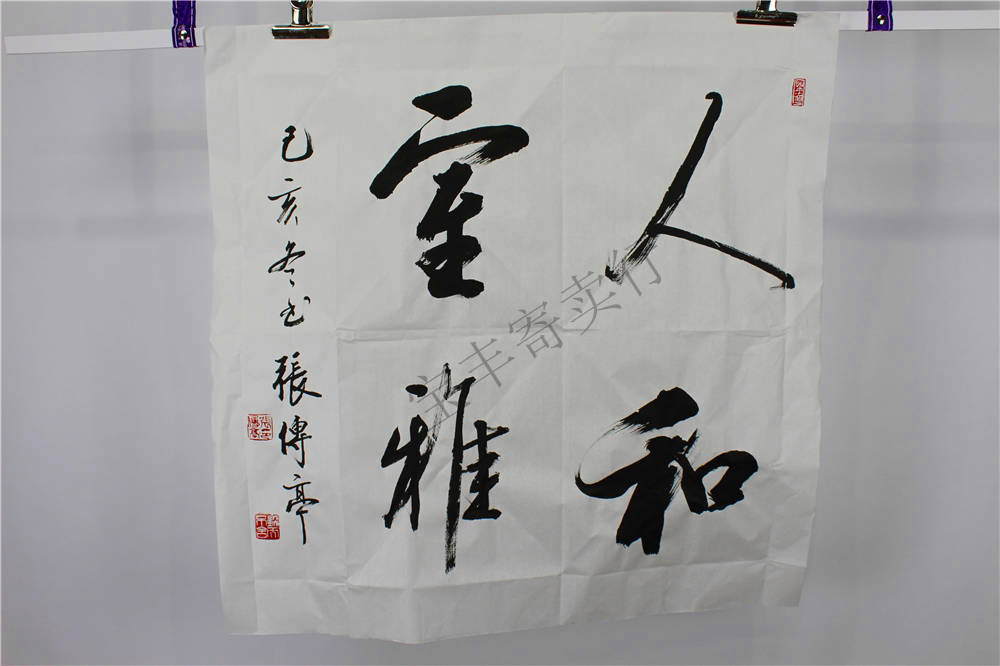 人和
室雅
己亥冬书
張傳亭
宝丰寄卖行